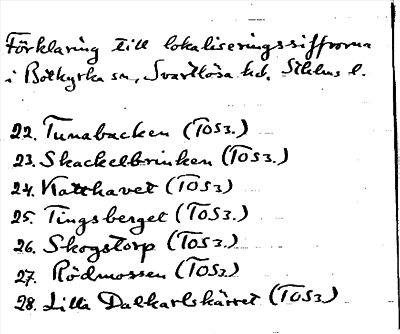 Förklaring till lokaliseringssiffrorna
i Botkyrka sn, Svartlösa hd, Sthlms l.
22. Tunabacken (TOS3.)
23. Skackelbrinken (TOS3.)
24. Katthavet (TOS3)
25. Tingsberget (TOS3.)
26. Skogstorp (TOS3.)
27. Rödmossen (TOS3.)
28. Lilla Dalkarlskärret (TOS3)